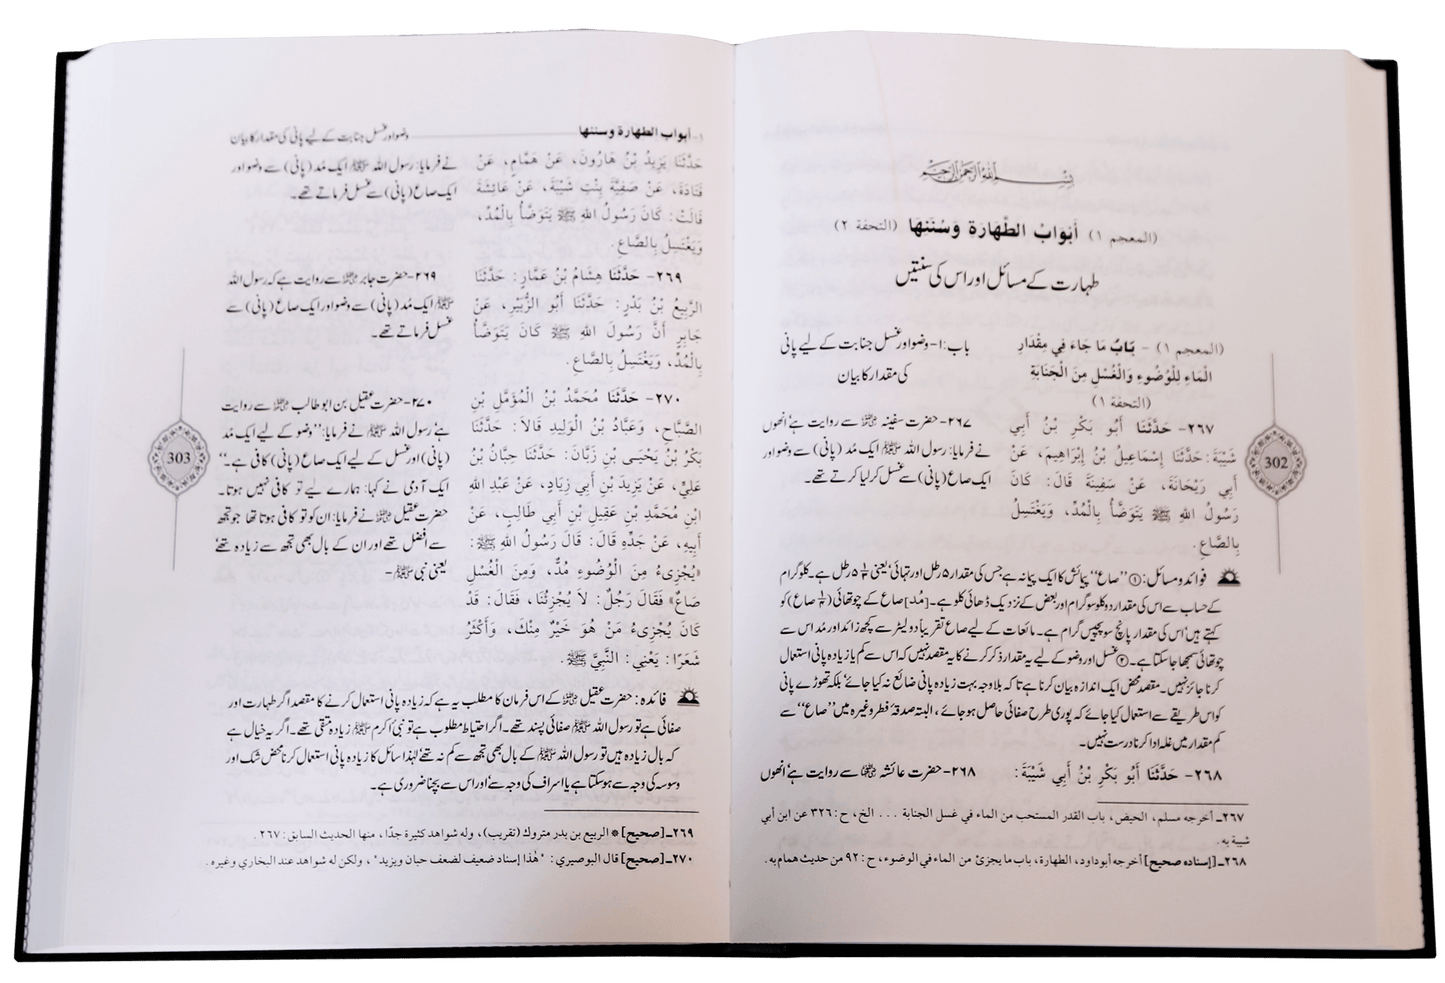 بِسْمِ اللهِ الرَّحْمٰنِ الرَّحِيْمِ
(المعجم ١) أَبْوَابُ الطَّهَارَةِ وَسُنَنِهَا (التحفة ٢)
طہارت کے مسائل اور اس کی سنتیں
(المعجم ١) - بَابُ مَا جَاءَ فِي مِقْدَارِ
الْمَاءِ لِلْوُضُوءِ وَالْغُسْلِ مِنَ الْجَنَابَةِ
(التحفة ١)
باب:۱- وضو اور غسل جنابت کے لیے پانی
کی مقدار کا بیان
٢٦٧- حَدَّثَنَا أَبُو بَكْرِ بْنُ أَبِي
شَيْبَةَ: حَدَّثَنَا إِسْمَاعِيلُ بْنُ إِبْرَاهِيمَ، عَنْ
أَبِي رَيْحَانَةَ، عَنْ سَفِينَةَ قَالَ: كَانَ
رَسُولُ اللهِ ﷺ يَتَوَضَّأُ بِالْمُدِّ، وَيَغْتَسِلُ
بِالصَّاعِ.
۲۶۷- حضرت سفینہ ؓ سے روایت ہے' انھوں
نے فرمایا: رسول اللہ ﷺ ایک مُد (پانی) سے وضو اور
ایک صاع (پانی) سے غسل کر لیا کرتے تھے۔
302
فوائد و مسائل: ① ''صاع'' پیمائش کا ایک پیمانہ ہے جس کی مقدار ۵ رطل اور تہائی' یعنی ۵ ۱/۳ رطل ہے۔ کلوگرام
کے حساب سے اس کی مقدار دو کلو سو گرام اور بعض کے نزدیک ڈھائی کلو ہے۔ [مُد] صاع کے چوتھائی (۱/۴ صاع) کو
کہتے ہیں' اس کی مقدار پانچ سو پچیس گرام ہے۔ مائعات کے لیے صاع تقریباً دو لیٹر سے کچھ زائد اور مُد اس سے
چوتھائی سمجھا جا سکتا ہے۔ ② غسل اور وضو کے لیے یہ مقدار ذکر کرنے کا یہ مقصد نہیں کہ اس سے کم یا زیادہ پانی استعمال
کرنا جائز نہیں۔ مقصد محض ایک اندازہ بیان کرنا ہے تاکہ بلاوجہ بہت زیادہ پانی ضائع نہ کیا جائے' بلکہ تھوڑے پانی
کو اس طریقے سے استعمال کیا جائے کہ پوری طرح صفائی حاصل ہو جائے' البتہ صدقۂ فطر وغیرہ میں ''صاع'' سے
کم مقدار میں غلہ ادا کرنا درست نہیں۔
٢٦٨- حَدَّثَنَا أَبُو بَكْرِ بْنُ أَبِي شَيْبَةَ:
۲۶۸- حضرت عائشہ ؓ سے روایت ہے' انھوں
٢٦٧ـ أخرجه مسلم، الحيض، باب القدر المستحب من الماء في غسل الجنابة . . . الخ، ح: ٣٢٦ عن ابن أبي
شيبة به.
٢٦٨ـ [إسناده صحيح] أخرجه أبوداود، الطهارة، باب ما يجزئ من الماء في الوضوء، ح: ٩٢ من حديث همام به.
١- أبواب الطهارة وسننها
وضو اور غسل جنابت کے لیے پانی کی مقدار کا بیان
حَدَّثَنَا يَزِيدُ بْنُ هَارُونَ، عَنْ هَمَّامٍ، عَنْ
قَتَادَةَ، عَنْ صَفِيَّةَ بِنْتِ شَيْبَةَ، عَنْ عَائِشَةَ
قَالَتْ: كَانَ رَسُولُ اللهِ ﷺ يَتَوَضَّأُ بِالْمُدِّ،
وَيَغْتَسِلُ بِالصَّاعِ.
نے فرمایا: رسول اللہ ﷺ ایک مُد (پانی) سے وضو اور
ایک صاع (پانی) سے غسل فرماتے تھے۔
٢٦٩- حَدَّثَنَا هِشَامُ بْنُ عَمَّارٍ: حَدَّثَنَا
الرَّبِيعُ بْنُ بَدْرٍ: حَدَّثَنَا أَبُو الزُّبَيْرِ، عَنْ
جَابِرٍ أَنَّ رَسُولَ اللهِ ﷺ كَانَ يَتَوَضَّأُ
بِالْمُدِّ، وَيَغْتَسِلُ بِالصَّاعِ.
۲۶۹- حضرت جابر ؓ سے روایت ہے کہ رسول اللہ
ﷺ ایک مُد (پانی) سے وضو اور ایک صاع (پانی) سے
غسل فرماتے تھے۔
٢٧٠- حَدَّثَنَا مُحَمَّدُ بْنُ الْمُؤَمَّلِ بْنِ
الصَّبَّاحِ، وَعَبَّادُ بْنُ الْوَلِيدِ قَالَا: حَدَّثَنَا
بَكْرُ بْنُ يَحْيَى بْنِ زَبَّانَ: حَدَّثَنَا حِبَّانُ بْنُ
عَلِيٍّ، عَنْ يَزِيدَ بْنِ أَبِي زِيَادٍ، عَنْ عَبْدِ اللهِ
ابْنِ مُحَمَّدِ بْنِ عَقِيلِ بْنِ أَبِي طَالِبٍ، عَنْ
أَبِيهِ، عَنْ جَدِّهِ قَالَ: قَالَ رَسُولُ اللهِ ﷺ:
«يُجْزِىءُ مِنَ الْوُضُوءِ مُدٌّ، وَمِنَ الْغُسْلِ
صَاعٌ» فَقَالَ رَجُلٌ: لَا يُجْزِئُنَا، فَقَالَ: قَدْ
كَانَ يُجْزِىءُ مَنْ هُوَ خَيْرٌ مِنْكَ، وَأَكْثَرُ
شَعَرًا: يَعْنِي: النَّبِيَّ ﷺ.
۲۷۰- حضرت عقیل بن ابو طالب ؓ سے روایت
ہے' رسول اللہ ﷺ نے فرمایا: ''وضو کے لیے ایک مُد
(پانی) اور غسل کے لیے ایک صاع (پانی) کافی ہے۔''
ایک آدمی نے کہا: ہمارے لیے تو کافی نہیں ہوتا۔
حضرت عقیل ؓ نے فرمایا: ان کو تو کافی ہوتا تھا جو تجھ
سے افضل تھے اور ان کے بال بھی تجھ سے زیادہ تھے'
یعنی نبی ﷺ۔
303
فائدہ: حضرت عقیل ؓ کے اس فرمان کا مطلب یہ ہے کہ زیادہ پانی استعمال کرنے کا مقصد اگر طہارت اور
صفائی ہے تو رسول اللہ ﷺ صفائی پسند تھے۔ اگر احتیاط مطلوب ہے تو نبی اکرم ﷺ زیادہ متقی تھے۔ اگر یہ خیال ہے
کہ بال زیادہ ہیں تو رسول اللہ ﷺ کے بال بھی تجھ سے کم نہ تھے' لہٰذا سائل کا زیادہ پانی استعمال کرنا محض شک اور
وسوسہ کی وجہ سے ہو سکتا ہے یا اسراف کی وجہ سے' اور اس سے بچنا ضروری ہے۔
٢٦٩ـ [صحيح] * الربيع بن بدر متروك (تقريب)، وله شواهد كثيرة جدًا، منها الحديث السابق: ٢٦٧.
٢٧٠ـ [صحيح] قال البوصيري: "هذا إسناد ضعيف لضعف حبان ويزيد"، ولكن له شواهد عند البخاري وغيره.